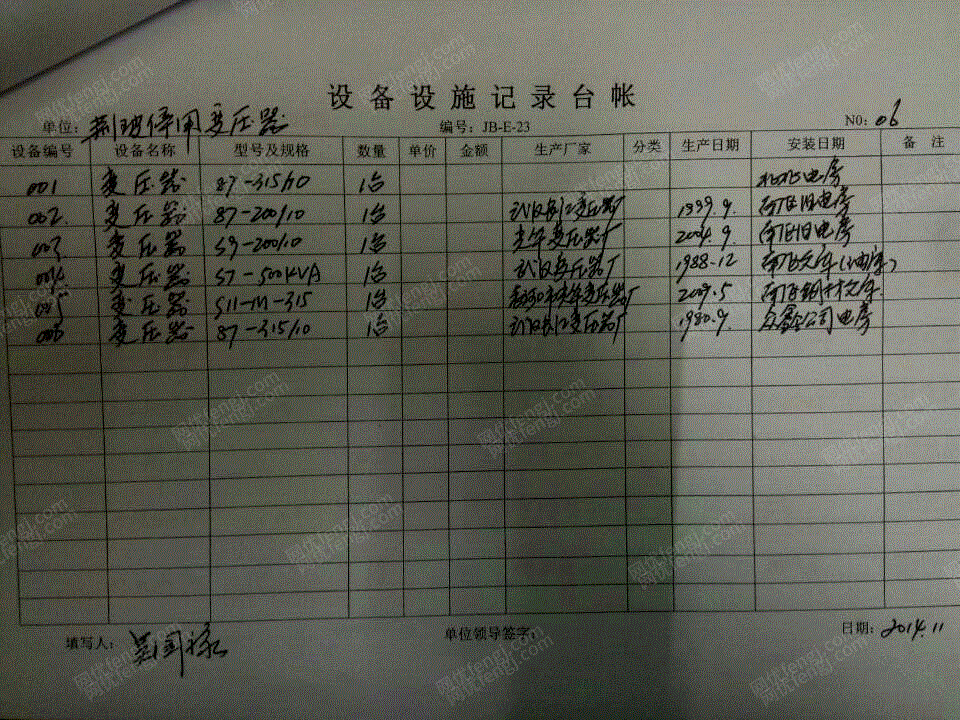 设备设施记录台帐
单位: 荆玻停用变压器 编号: JB-E-23 N0: 06
设备编号 设备名称 型号及规格 数量 单价 金额 生产厂家 分类 生产日期 安装日期 备 注
001 变压器 S7-315/10 1台 电房
002 变压器 S7-200/10 1台 变压器厂 1999.9. 旧电房
003 变压器 S9-200/10 1台 变压器厂 2004.9. 旧电房
004 变压器 S7-500KVA 1台 武汉变压器厂 1988.12
005 变压器 S11-M-315 1台 变压器厂 2009.5
006 变压器 S7-315/10 1台 变压器厂 1980.9. 公司电房
填写人: 单位领导签字: 日期: 2014.11
网优fengj.com